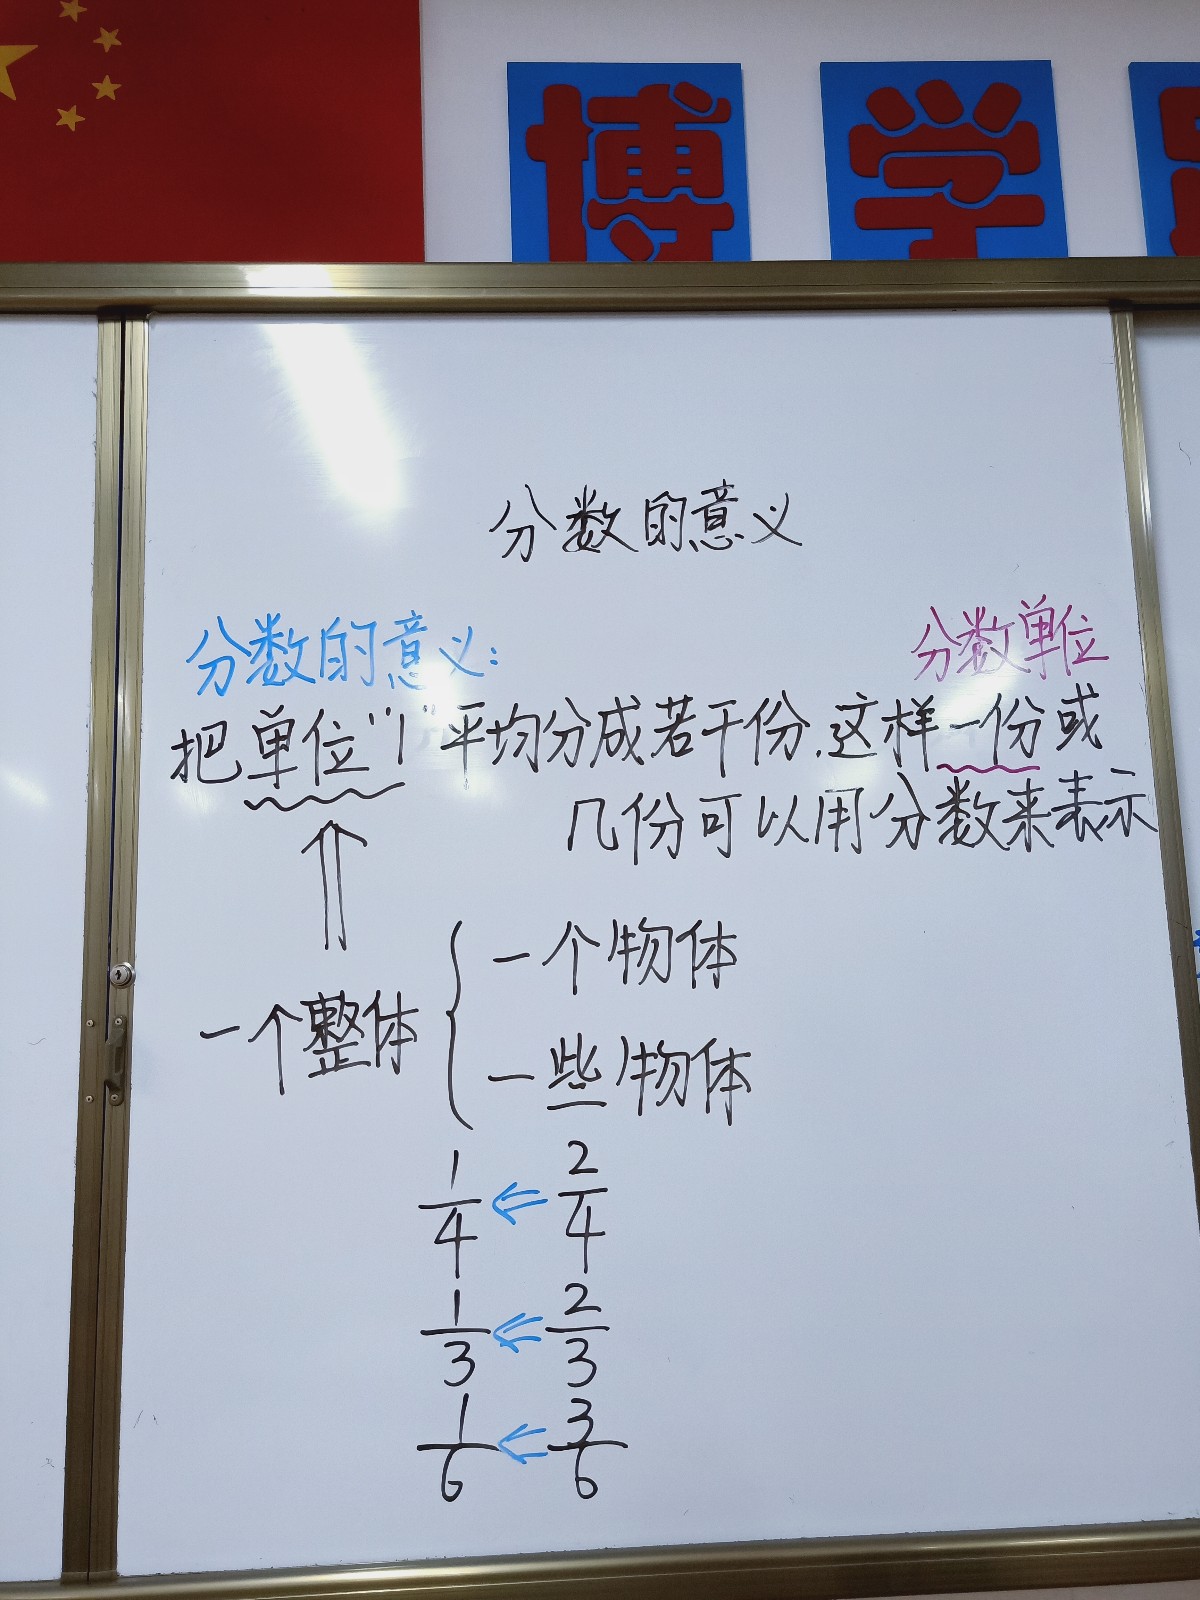 博学
分数的意义
分数的意义:
分数单位
把单位“1”平均分成若干份,这样一份或
几份可以用分数来表示
一个整体
一个物体
一些物体
1/4 ⇐ 2/4
1/3 ⇐ 2/3
1/6 ⇐ 3/6